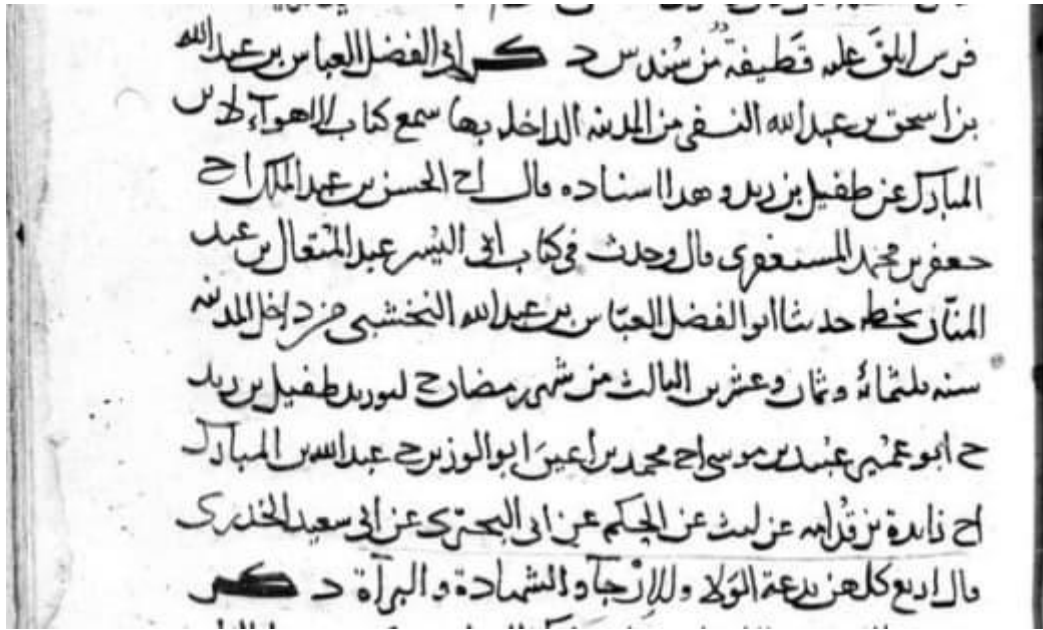 فرس ابلق عليه قطيفة من سندس د ذكر ابي الفضل العباس بن عبد الله
بن اسحق بن عبد الله النسفي من المدينة الداخلة بها سمع كتاب الاهواء لابن
المبارك عن طفيل بن زيد وهذا اسناده قال اح الحسن بن عبد الملك اح
جعفر بن محمد المستغفري قال وجدت في كتاب ابي اليسر عبد المتعال بن عبد
المنان بخطه حدثنا ابو الفضل العباس بن عبد الله النخشبي من داخل المدينة
سنة ثلثمائة وثمان وعشرين الثالث من شهر رمضان ح ابو زيد طفيل بن زيد
ح ابو عمير عنبد بن موسى اح محمد بن اعين ابو الوزير ح عبد الله بن المبارك
اح زائدة بن قدامة عن ليث عن الحكم عن ابي البختري عن ابي سعيد الخدري
قال اربع كلهن بدعة الولاء والارجاء والشهادة والبراة د ذكر